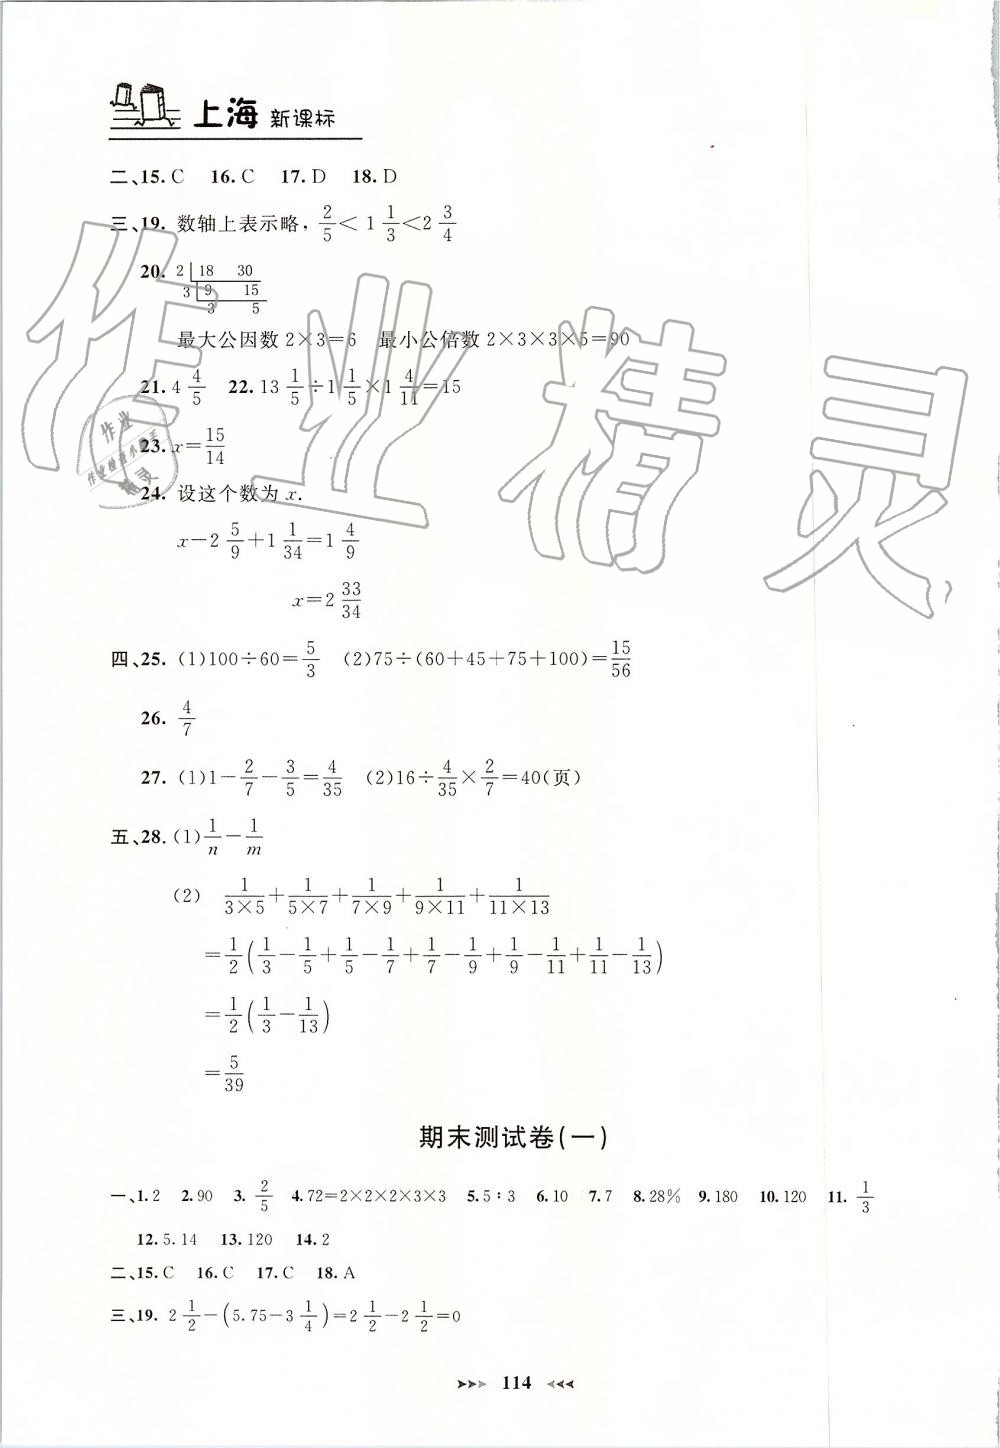 上海 新课标
二、15. C 16. C 17. D 18. D
三、19. 数轴上表示略，2/5 < 1 1/3 < 2 3/4
20. 2 | 18 30
3 | 9 15
3 5
最大公因数 2×3=6 最小公倍数 2×3×3×5=90
21. 4 4/5 22. 13 1/5 ÷ 1 1/5 × 1 4/11 = 15
23. x = 15/14
24. 设这个数为 x.
x − 2 5/9 + 1 1/34 = 1 4/9
x = 2 33/34
四、25. (1) 100÷60 = 5/3 (2) 75÷(60+45+75+100) = 15/56
26. 4/7
27. (1) 1 − 2/7 − 3/5 = 4/35 (2) 16 ÷ 4/35 × 2/7 = 40(页)
五、28. (1) 1/n − 1/m
(2) 1/(3×5) + 1/(5×7) + 1/(7×9) + 1/(9×11) + 1/(11×13)
= 1/2 (1/3 − 1/5 + 1/5 − 1/7 + 1/7 − 1/9 + 1/9 − 1/11 + 1/11 − 1/13)
= 1/2 (1/3 − 1/13)
= 5/39
期末测试卷(一)
一、1. 2 2. 90 3. 2/5 4. 72=2×2×2×3×3 5. 5∶3 6. 10 7. 7 8. 28% 9. 180 10. 120 11. 1/3
12. 5.14 13. 120 14. 2
二、15. C 16. C 17. C 18. A
三、19. 2 1/2 − (5.75 − 3 1/4) = 2 1/2 − 2 1/2 = 0
114
作业精灵
作业
作业检查小帮手
精灵